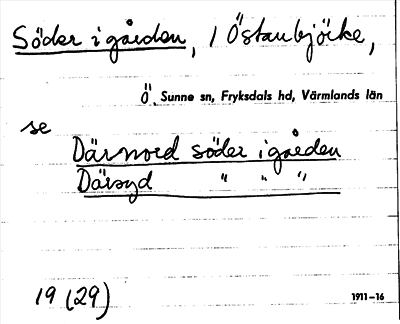 Söder i gården, i Östanbjörke,
Ö. Sunne sn, Fryksdals hd, Värmlands län
se
Därnord söder i gården
Därsyd " " "
19 (29)
1911–16